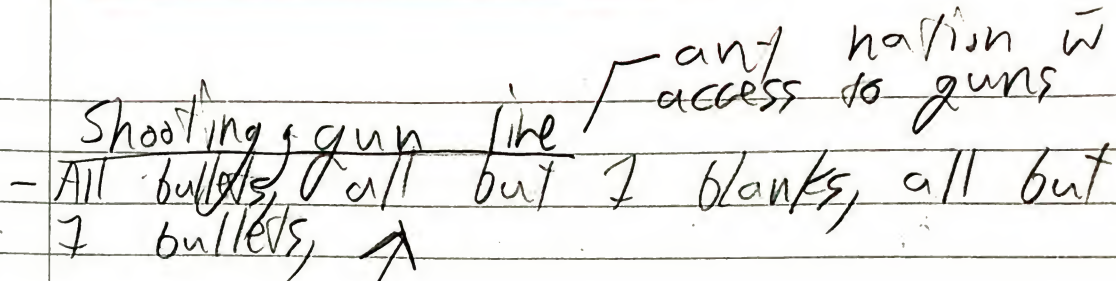 any nation w̄
access to guns
Shooting, gun line
- All bullets, all but 1 blanks, all but
1 bullets,